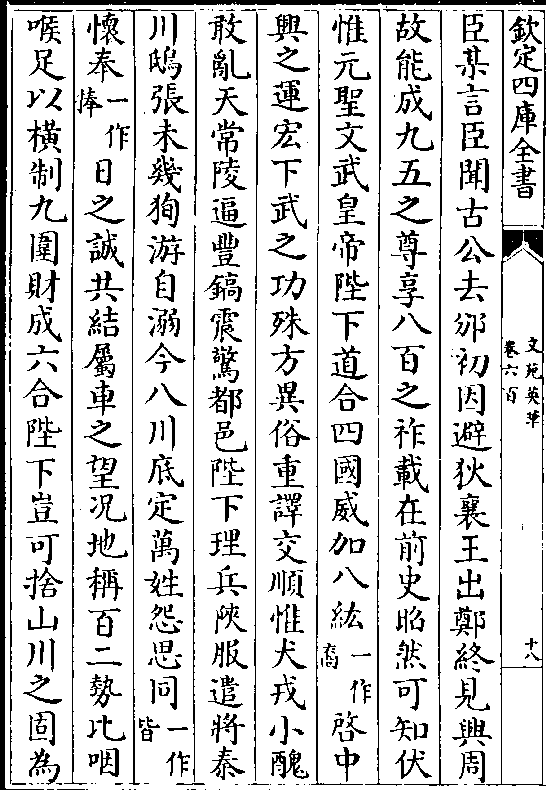 欽定四庫全書
文苑英華
卷六百
十八
臣某言臣聞古公去邠初因避狄襄王出鄭終見興周
故能成九五之尊享八百之祚載在前史昭然可知伏
惟元聖文武皇帝陛下道合四國威加八紘一作裔啓中
興之運宏下武之功殊方異俗重譯交順惟犬戎小醜
敢亂天常陵逼豐鎬震驚都邑陛下理兵陜服遣將泰
川鴟張未幾狥游自溺今八川底定萬姓怨思同一作皆
懷奉一作捧日之誠共結屬車之望况地稱百二勢比咽
喉足以橫制九圍財成六合陛下豈可捨山川之固為